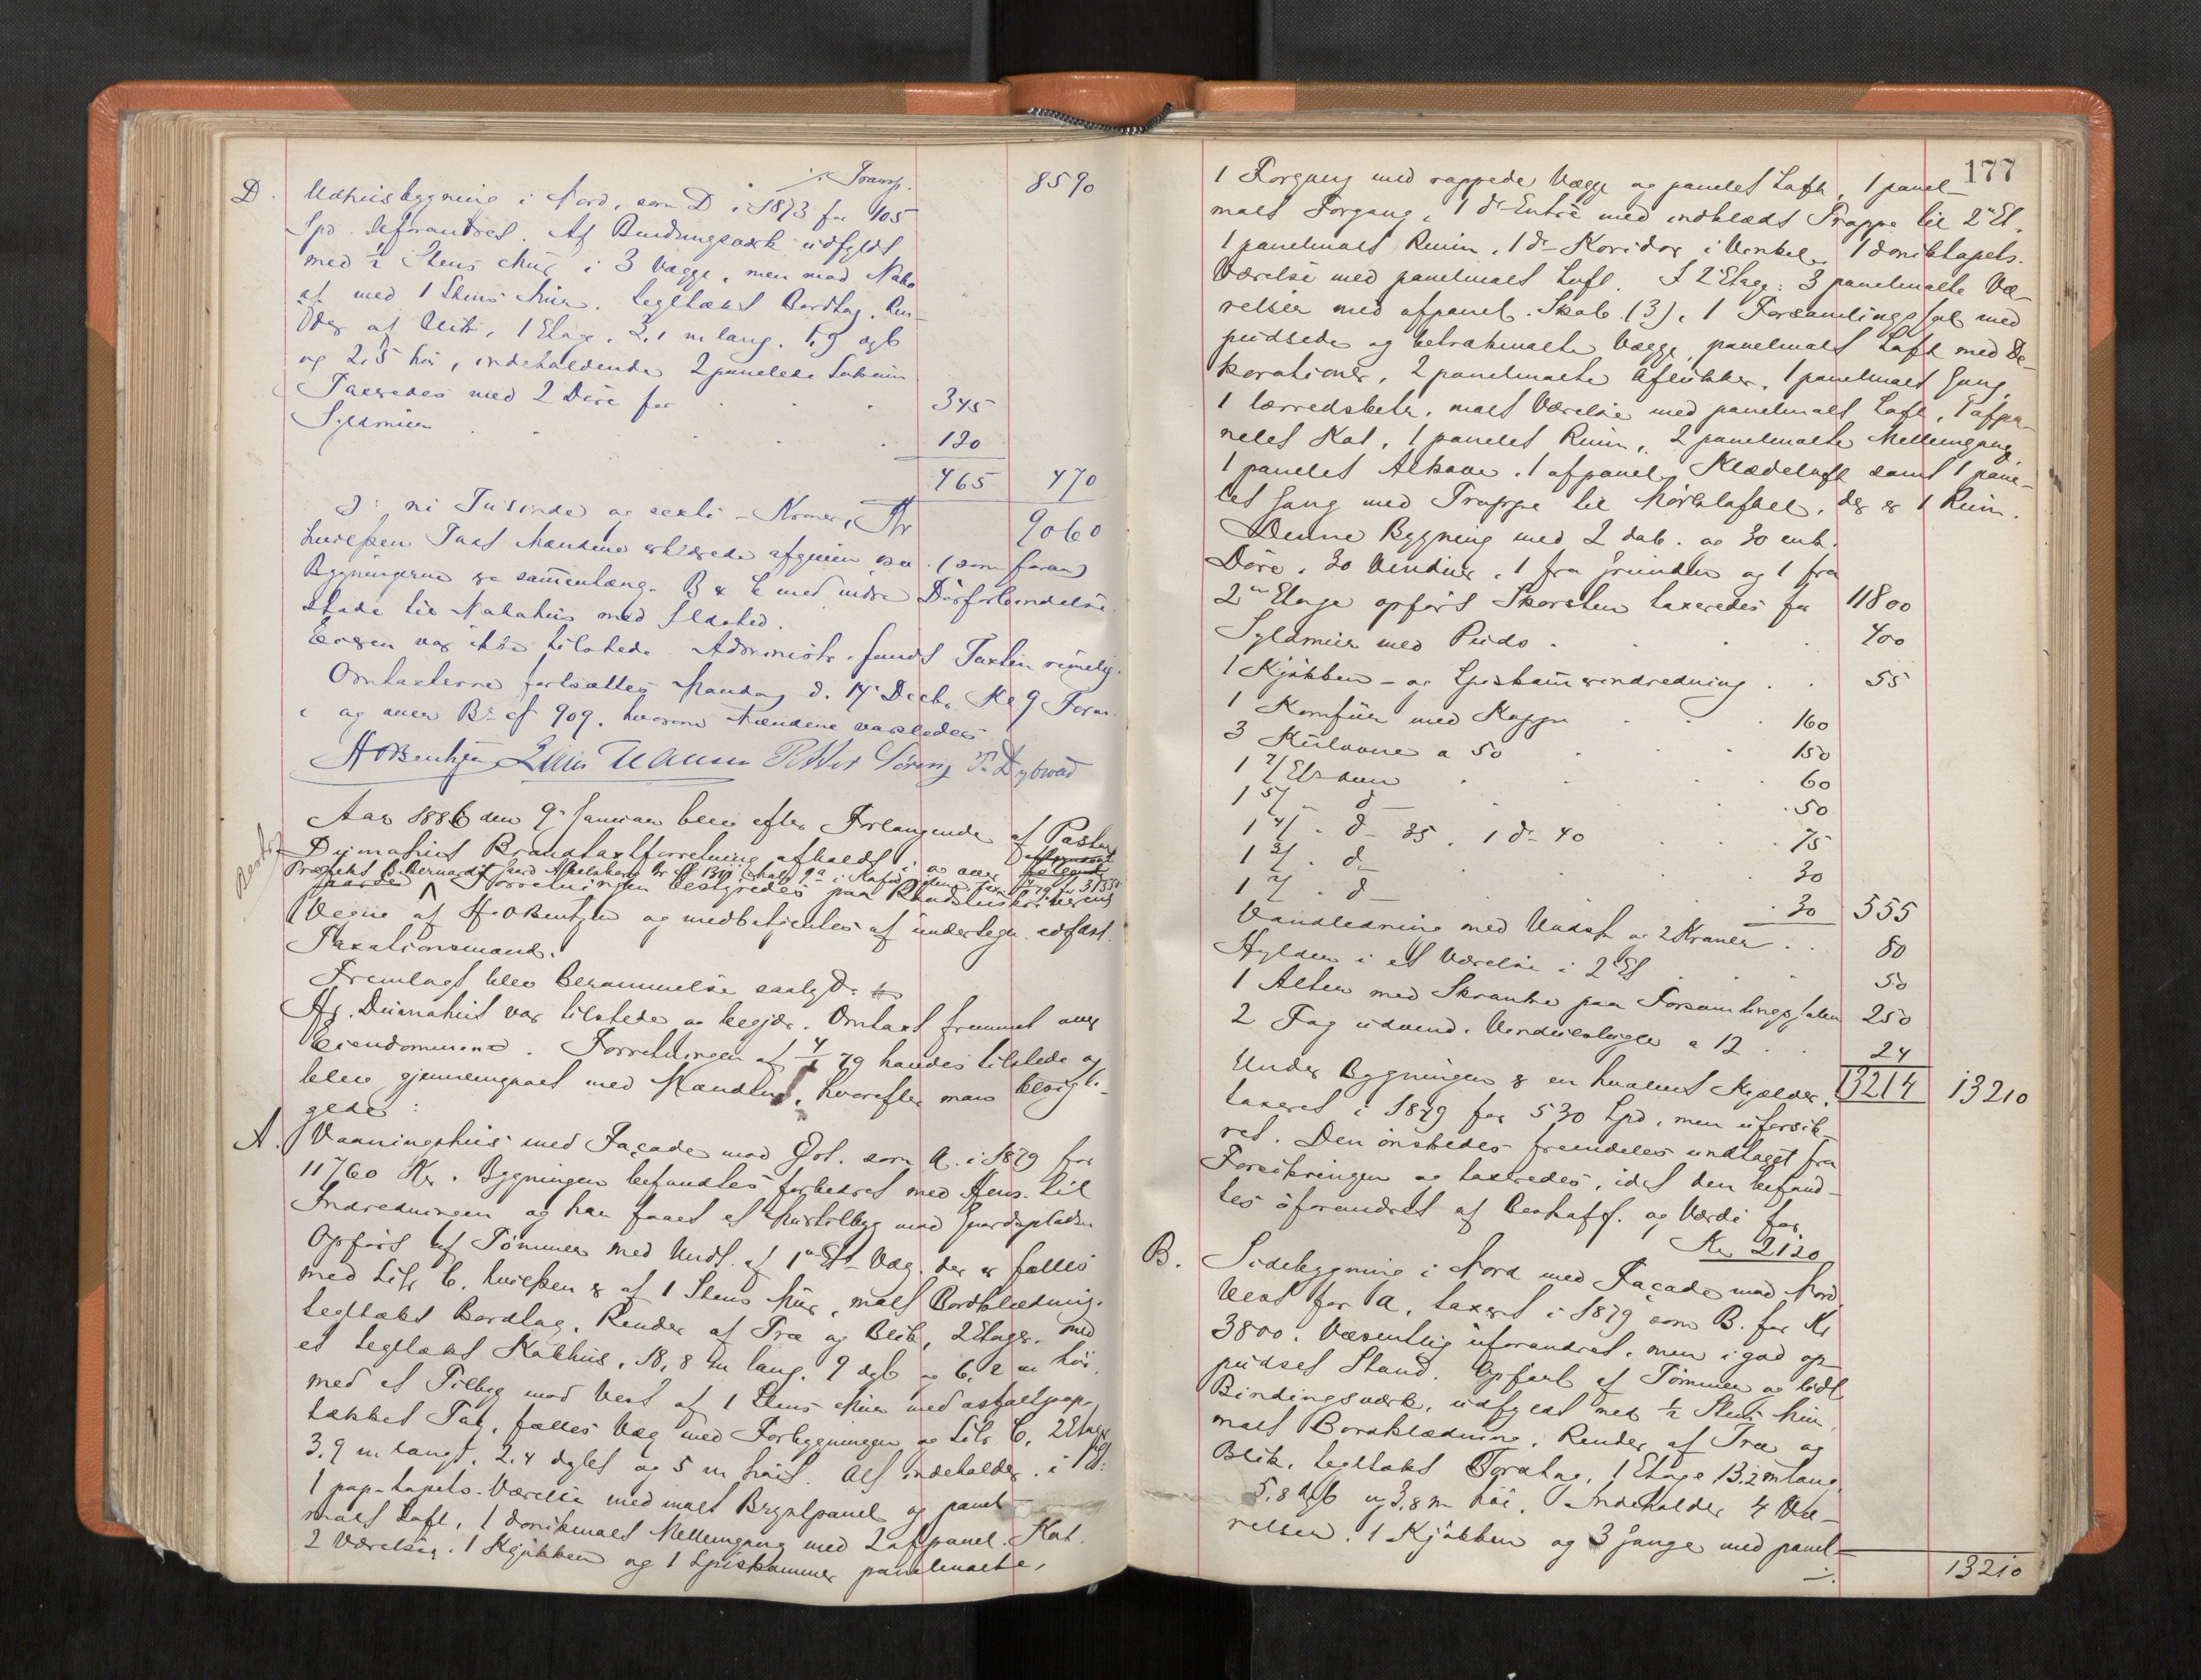 ./. Transp. 8590
D. Udhusbygning i Nord, som D i 1873 for 105
Spd. Uforandret. Af Bindingsværk udfyldt
med ½ Stens Mur i 3 Vægge, men mod Nabo
af med 1 Stens Mur. Tegltækt Bordtag. Ren-
der af Blik, 1 Etage, 3,1 m lang, 1,9 dyb
og 2,5 høi, indeholdende 2 panelede Lokum
Taxeredes med 2 Döre for . . . 345
Syldmuren . . . . 120
465 470
ɔ: ni Tusinde og sexti - Kroner, Kr 9060
hvilken Taxt Mændene erklærede afgiven osv. (som foran)
Bygningerne ere sammenhæng. B & C med indre Dörforbindelse
Stade til Nabohus med Ildsted.
Eieren var ikke tilstede. Administr. fandt Taxten rimelig.
Omtaxterne fortsættes Mandag d. 14 Decbr. Kl 9 Form.
i og over Br. af 909. hvorom Mændene varsledes
HOBentzen Lars Hansen Petter Sörensen T. Dybwad
Aar 1886 den 9. Januar blev efter Forlangende af Pastor
Dumahut Brandtaxtforretning afholdt i og over
Præfekt B. Bernards Gaard
Forretningen bestyredes paa Brandstyrelsens
Vegne af H. O Bentzen og medbetjentes af undertegn. edfæst.
Taxationsmænd.
Fremlagt blev Berammelse saalyd:
Hr. Dumahut var tilstede og begjær. Omtaxt fremmet over
Eiendommene. Forretningen af 4/1 79 havdes tilstede og
blev gjennemgaaet med Mændene, hvorefter man besigti-
gede:
A. Vaaningshus med Façade mod Öst. som A. i 1879 for
11760 Kr. Bygningen befandtes forbedret med Hens. til
Indredningen og har faaet et Murtilbyg mod Gaardspladsen
Opfört af Tömmer med Undt. af 1ste Et. Væg. der er fælles
med Litr C. hvilken er af 1 Stens Mur, malt Bordklædning.
tegltækt Bordtag. Render af Træ og Blik, 2 Etager. med
et tegltækt Kakhus, 18,8 m lang, 9 dyb og 6,2 m høi,
med et Tilbyg mod Vest af 1 Stens Mur med asfaltpap-
tækket Tag, fælles Væg med Forbygningen og Litr C, 2 Etager
3,9 m langt, 2,4 dybt og 5 m höit. Alt indeholder i
1 pap-tapets. Værelse med malt Brystpanel og panel-
malt Loft, 1 donikmalt Mellemgang med 2 afpanel. Kot.
2 Værelser. 1 Kjökken og 1 Spiskammer panelmalte,
177
1 Forgang med rappede Vægge og panelet Loft, 1 panel-
malt Forgang, 1 do Entré med indklædt Trappe til 2n Et.
1 panelmalt Rum, 1 do Koridor i Vinkel, 1 doniktapets.
Værelse med panelmalt Loft. I 2 Etage: 3 panelmalte Væ-
relser med afpanel. Skab (3), 1 Forsamlingssal med
pudsede og betrakmalte Vægge, panelmalt Loft med De-
korationer, 2 panelmalte Aflukker, 1 panelmalt Gang,
1 lærredsbetr. malt Værelse med panelmalt Loft, 1 afpa-
nelet Kot, 1 panelet Rum, 2 panelmalte Mellemgang,
1 panelet Alkove, 1 afpanel. Klædeloft samt 1 pane-
let Gang med Trappe til Mörkloftet, der er 1 Rum.
Denne Bygning med 2 dob. og 30 enk.
Döre, 30 Vinduer, 1 fra Grunden og 1 fra
2den Etage opfört Skorsten taxeredes for 11800
Syldmur med Puds . . . 400
1 Kjökken- og Spiskammerindredning . . 55
1 Komfur med Kappe . . . 160
3 Kulovne a 50 . . . 150
1 7/ Et. ovn . . . 60
1 5/ - do - . . . 50
1 4/ - do - 35, 1 do 40 . . . 75
1 3/ - do - . . . 30
1 2/ - do - . . . 30 555
Vandledning med Vadsk og 2 Kraner . . 80
Hylder i et Værelse i 2 Et . . . 50
1 Alter med Skranke paa Forsamlingssalen 250
2 Fag udvend. Vinduesluger a 12 . . 24
Under Bygningen er en hvælvet Kjælder, 13214 13210
taxeret i 1879 for 530 Spd, men uforsik-
ret. Den önskedes fremdeles undtaget fra
Forsikringen og taxeredes, idet den befand-
tes uforandret af Beskaff. og Værdi for
Kr 2120
B. Sidebygning i Nord med Façade mod Nord
Vest for A, taxeret i 1879 som B. for Kr
3800. Væsentlig uforandret, men i god op-
pudset Stand. Opfört af Tömmer og lidt
Bindingsværk, udfyldt med ½ Stens Mur,
malt Bordklædning, Render af Træ og
Blik, tegltækt Bordtag, 1 Etage 13,2 m lang,
5,8 dyb og 3,8 m höi. Indeholder 4 Væ-
relser. 1 Kjökken og 3 Gange med panel-
./. 13210